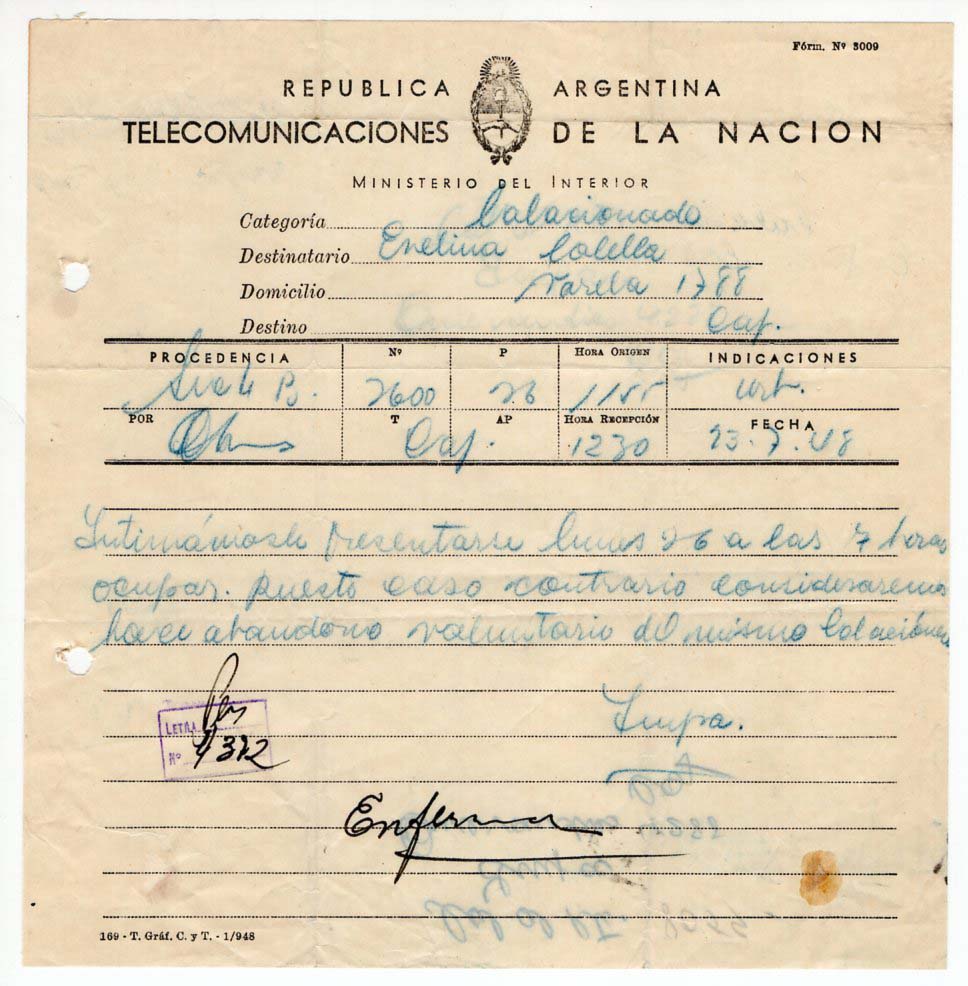 Fórm. Nº 3009
REPUBLICA ARGENTINA
TELECOMUNICACIONES DE LA NACION
MINISTERIO DEL INTERIOR
Categoría Colacionado
Destinatario Evelina Colella
Domicilio Varela 1788
Destino Cap.
PROCEDENCIA Nº P HORA ORIGEN INDICACIONES
B. 2600 26 1155 urt.
POR T AP HORA RECEPCIÓN FECHA
Cap. 1230 23.7.48
Intimámosle presentarse lunes 26 a las 7 horas
ocupar puesto caso contrario consideraremos
hace abandono voluntario del mismo Colaciónen
Impa.
LETRA Per
Nº 4372
Enferma
169 - T. Gráf. C. y T. - 1/948